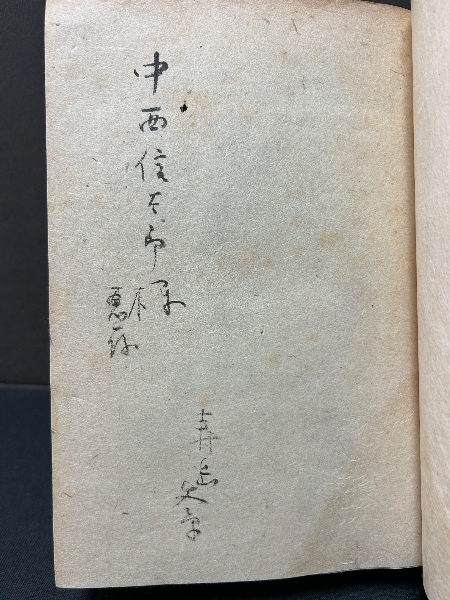 中西信太郎様
恵存
寿岳文章